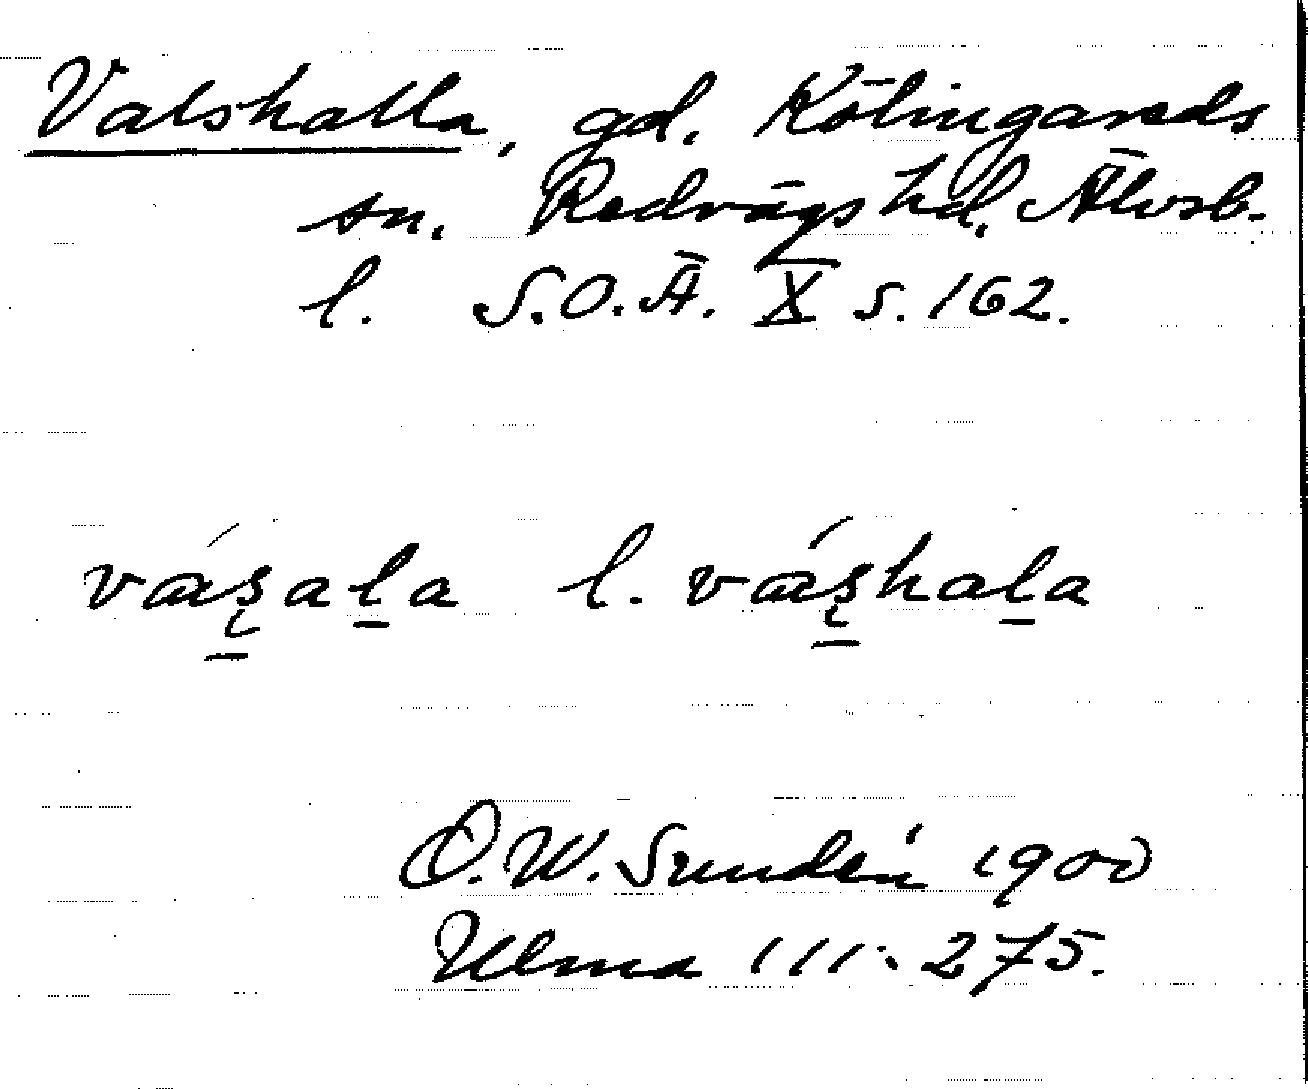 Valshalla, gd. Kölingareds
sn. Redvägs hd. Älvsb.
l. S.O.Ä. X s. 162.
vá̄s̨ala l. vá̄s̨hala
D. W. Sundén 1900
Ulma 111:275.